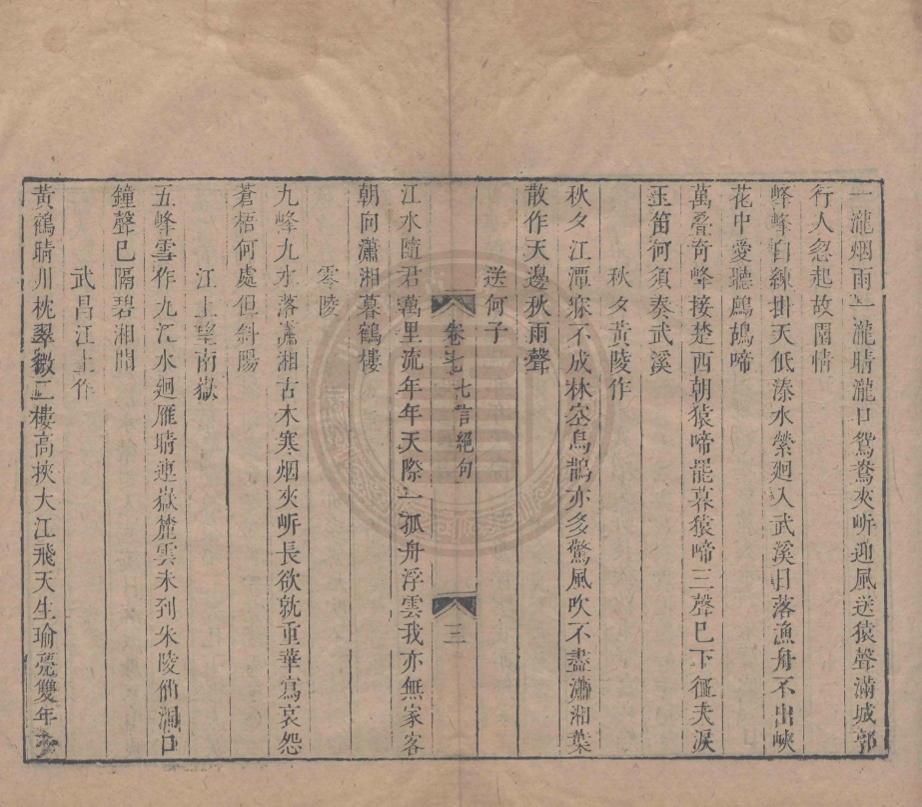 一瀧烟雨一瀧晴瀧口鴛鴦夾岍迎風送猿聲滿城郭
行人忽起故園情
峰峰白練掛天低溱水縈廻入武溪日落漁舟不出峽
花中愛聽鷓鴣啼
萬疊奇峰接楚西朝猿啼罷暮猿啼三聲巳下征夫淚
玉笛何須奏武溪
秋夕黃陵作
秋夕江潭寐不成林空烏鵲亦多驚風吹不盡瀟湘葉
散作天邊秋雨聲
送何子
卷七 七言絕句 三
江水隨君萬里流年年天際一孤舟浮雲我亦無家客
朝向瀟湘暮鶴樓
零陵
九峰九水落瀟湘古木寒烟夾岍長欲就重華寫哀怨
蒼梧何處但斜陽
江上望南嶽
五峰雪作九江水廻雁晴連嶽麓雲未到朱陵仙洞口
鐘聲巳隔碧湘聞
武昌江上作
黃鶴晴川枕翠微二樓高挾大江飛天生瑜亮雙年少